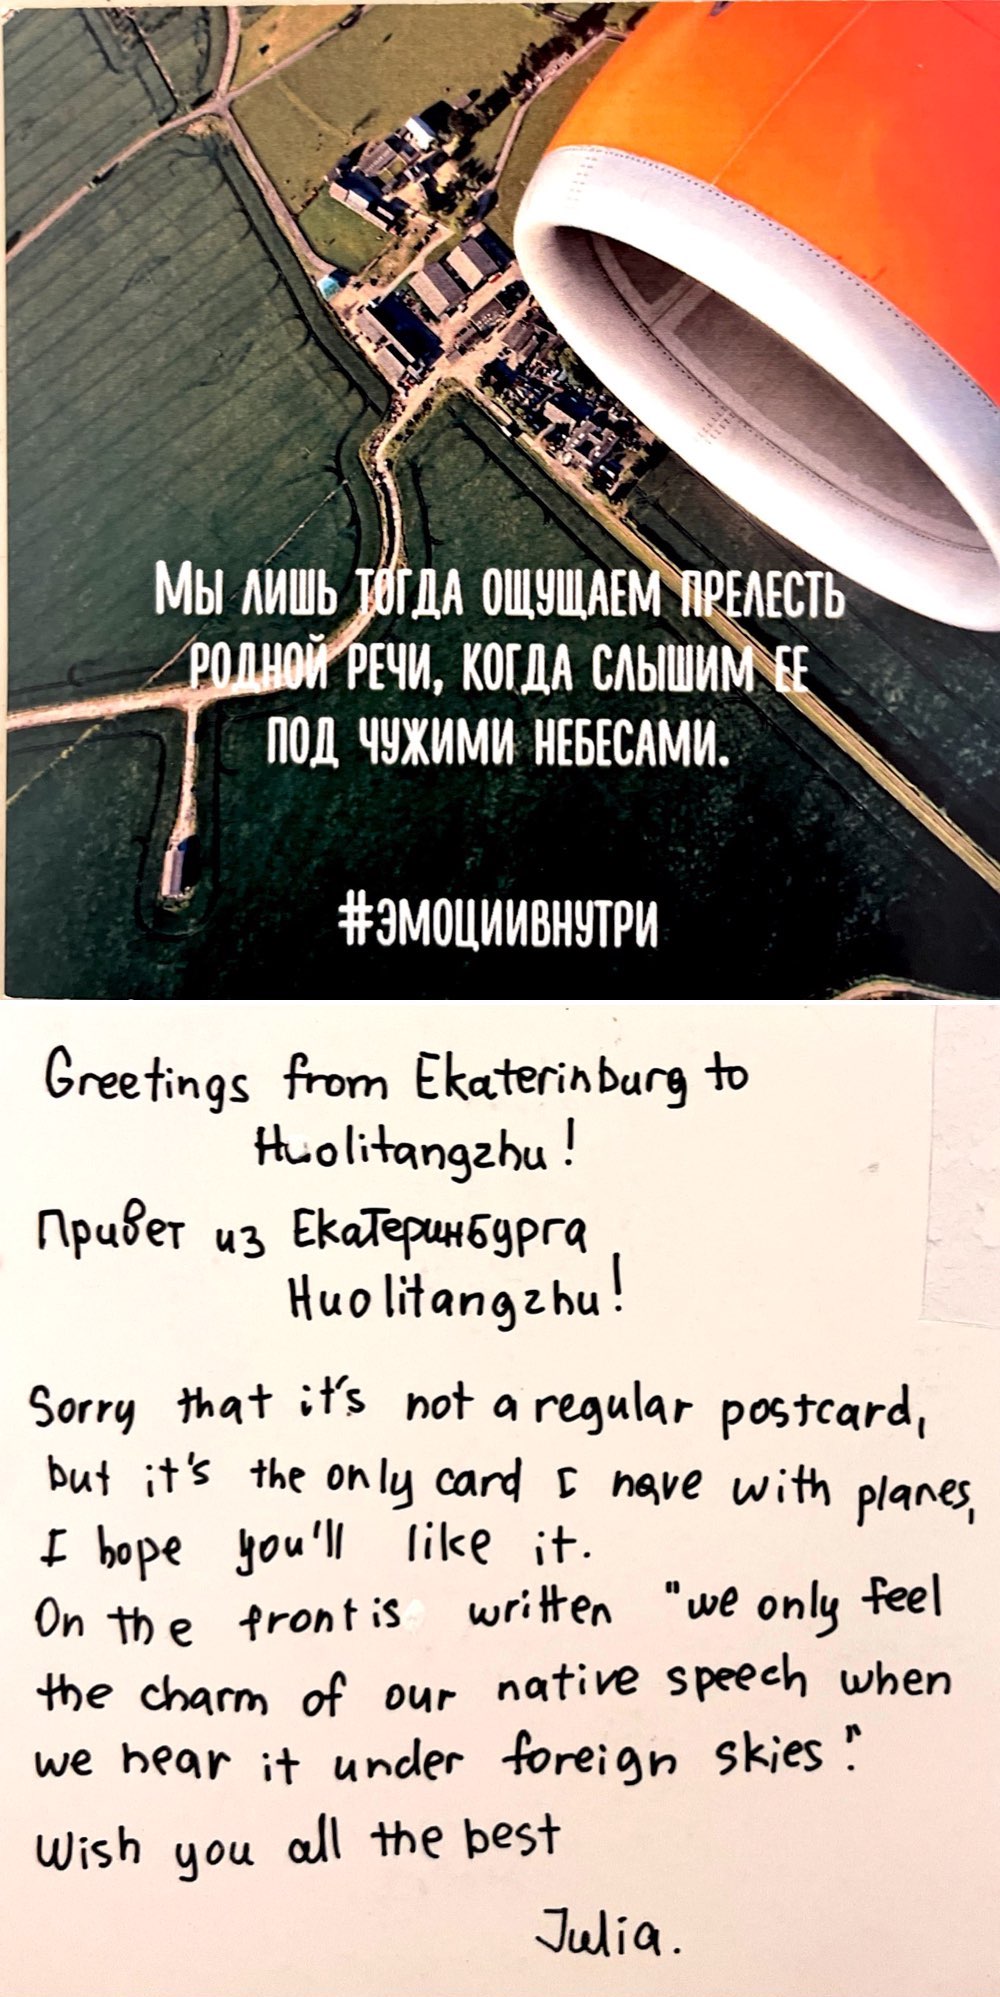 Мы лишь тогда ощущаем прелесть
родной речи, когда слышим ее
под чужими небесами.
#эмоциивнутри
Greetings from Ekaterinburg to
Huolitangzhu!
Привет из Екатеринбурга
Huolitangzhu!
Sorry that it's not a regular postcard,
but it's the only card I have with planes,
I hope you'll like it.
On the front is written "we only feel
the charm of our native speech when
we hear it under foreign skies".
Wish you all the best
Julia.